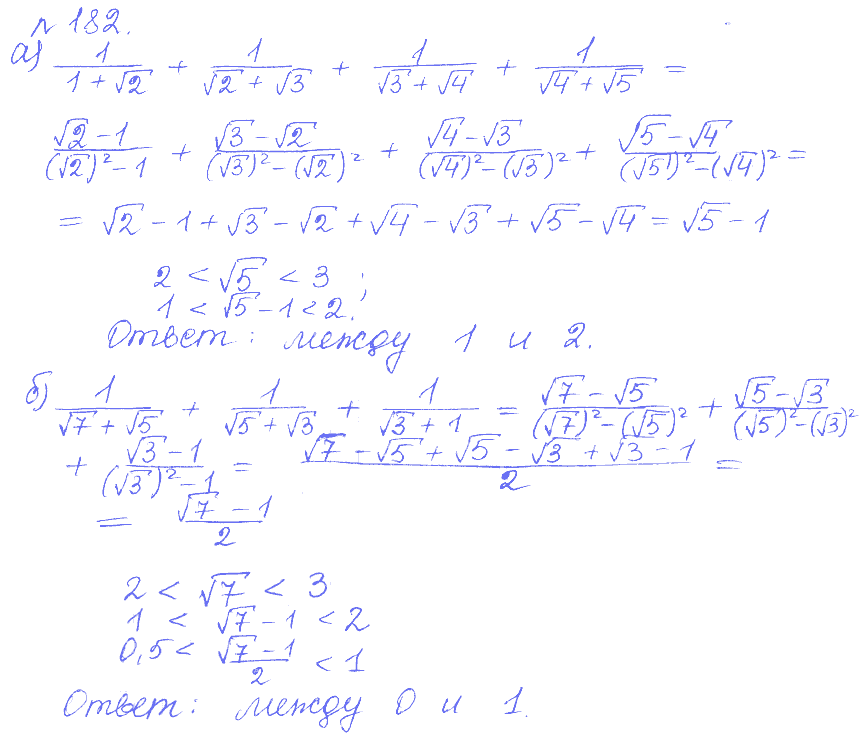 № 182.
а) 1/(1 + √2) + 1/(√2 + √3) + 1/(√3 + √4) + 1/(√4 + √5) =
(√2 - 1)/((√2)² - 1) + (√3 - √2)/((√3)² - (√2)²) + (√4 - √3)/((√4)² - (√3)²) + (√5 - √4)/((√5)² - (√4)²) =
= √2 - 1 + √3 - √2 + √4 - √3 + √5 - √4 = √5 - 1
2 < √5 < 3 ;
1 < √5 - 1 < 2.
Ответ: между 1 и 2.
б) 1/(√7 + √5) + 1/(√5 + √3) + 1/(√3 + 1) = (√7 - √5)/((√7)² - (√5)²) + (√5 - √3)/((√5)² - (√3)²)
+ (√3 - 1)/((√3)² - 1) = (√7 - √5 + √5 - √3 + √3 - 1)/2 =
= (√7 - 1)/2
2 < √7 < 3
1 < √7 - 1 < 2
0,5 < (√7 - 1)/2 < 1
Ответ: между 0 и 1.